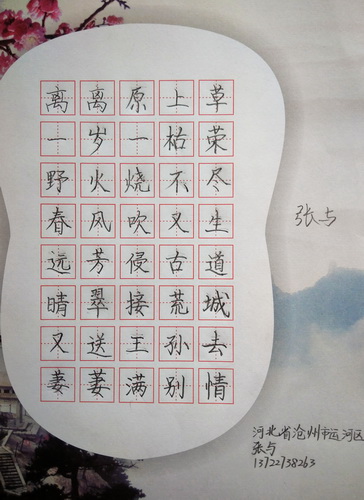 离离原上草
一岁一枯荣
野火烧不尽
春风吹又生
远芳侵古道
晴翠接荒城
又送王孙去
萋萋满别情
张与
河北省沧州市运河区
张与
13722758263